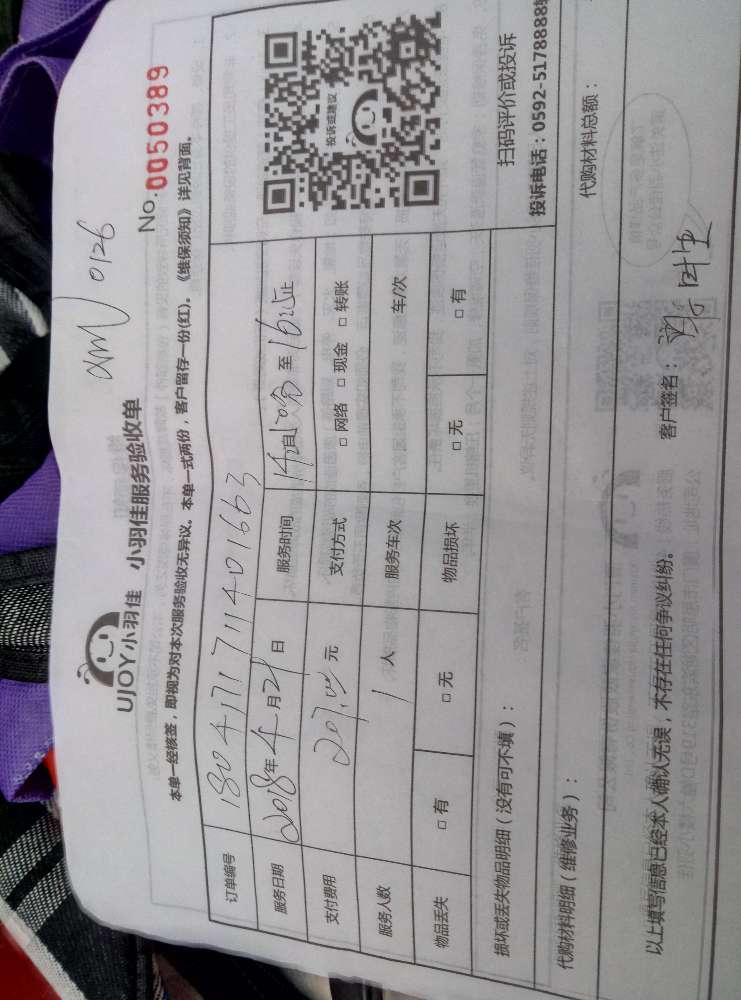 amv 0126
UJOY小羽佳 小羽佳服务验收单
No.0050389
本单一经核签，即视为对本次服务验收无异议。本单一式两份，客户留存一份(红)。《维保须知》详见背面。
订单编号 180417171140 1663
服务日期 2018年4月21日 服务时间 14 至 16 止
支付费用 元 支付方式 □ 网络 □ 现金 □ 转账
服务人数 1 人 服务车次 车/次
物品丢失 □ 有 □ 无 物品损坏 □ 无 □ 有
投诉或建议
扫码评价或投诉
投诉电话：0592-5178888转
损坏或丢失物品明细（没有可不填）：
代购材料明细（维修业务）： 代购材料总额：
以上填写信息已经本人确认无误，不存在任何争议纠纷。 客户签名：